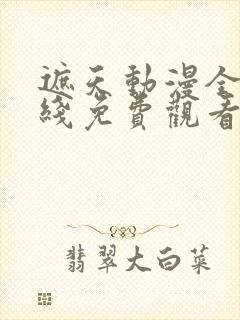 遮天動漫全
綫免費觀看
翡翠大白菜